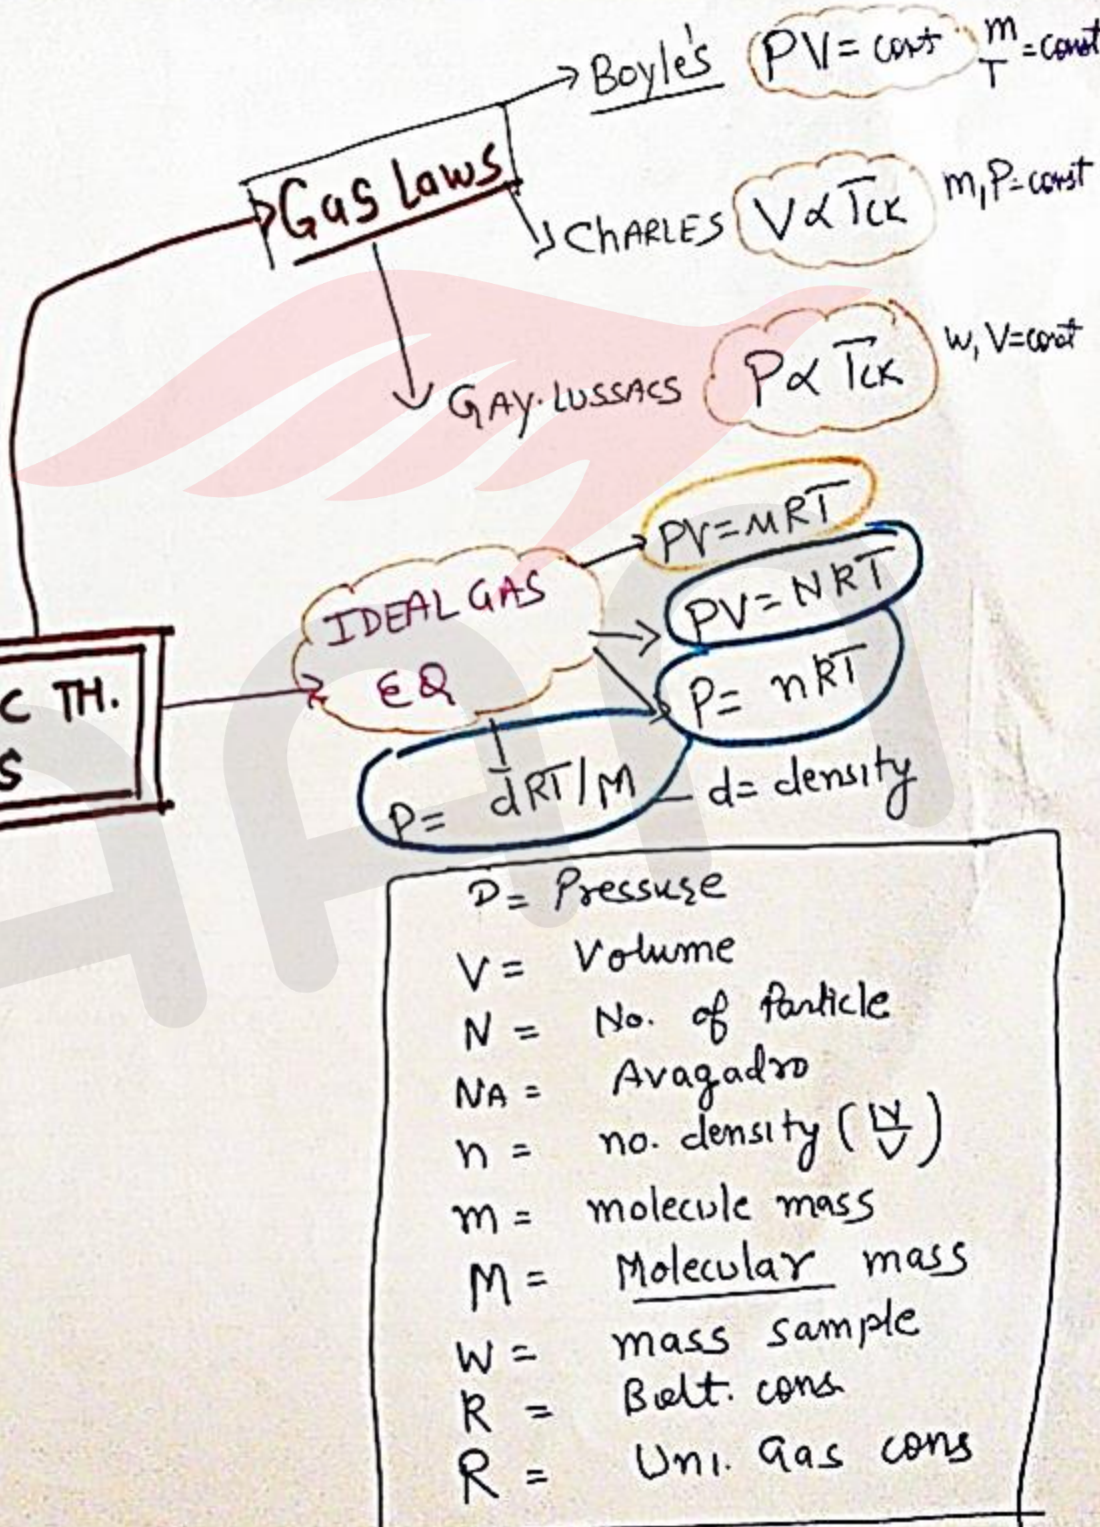 Boyle's PV = const m/T = const
Gas Laws
CHARLES V ∝ T(K m,P=const
GAY-LUSSACS P ∝ T(K w, V=const
IDEAL GAS
EQ
PV=MRT
PV=NRT
P= nRT
P= dRT/M — d= density
C TH.
S
P= Pressure
V= Volume
N = No. of Particle
NA = Avagadro
n = no. density (N/V)
m = molecule mass
M = Molecular mass
W = mass sample
R = Bolt. cons
R = Uni. Gas cons